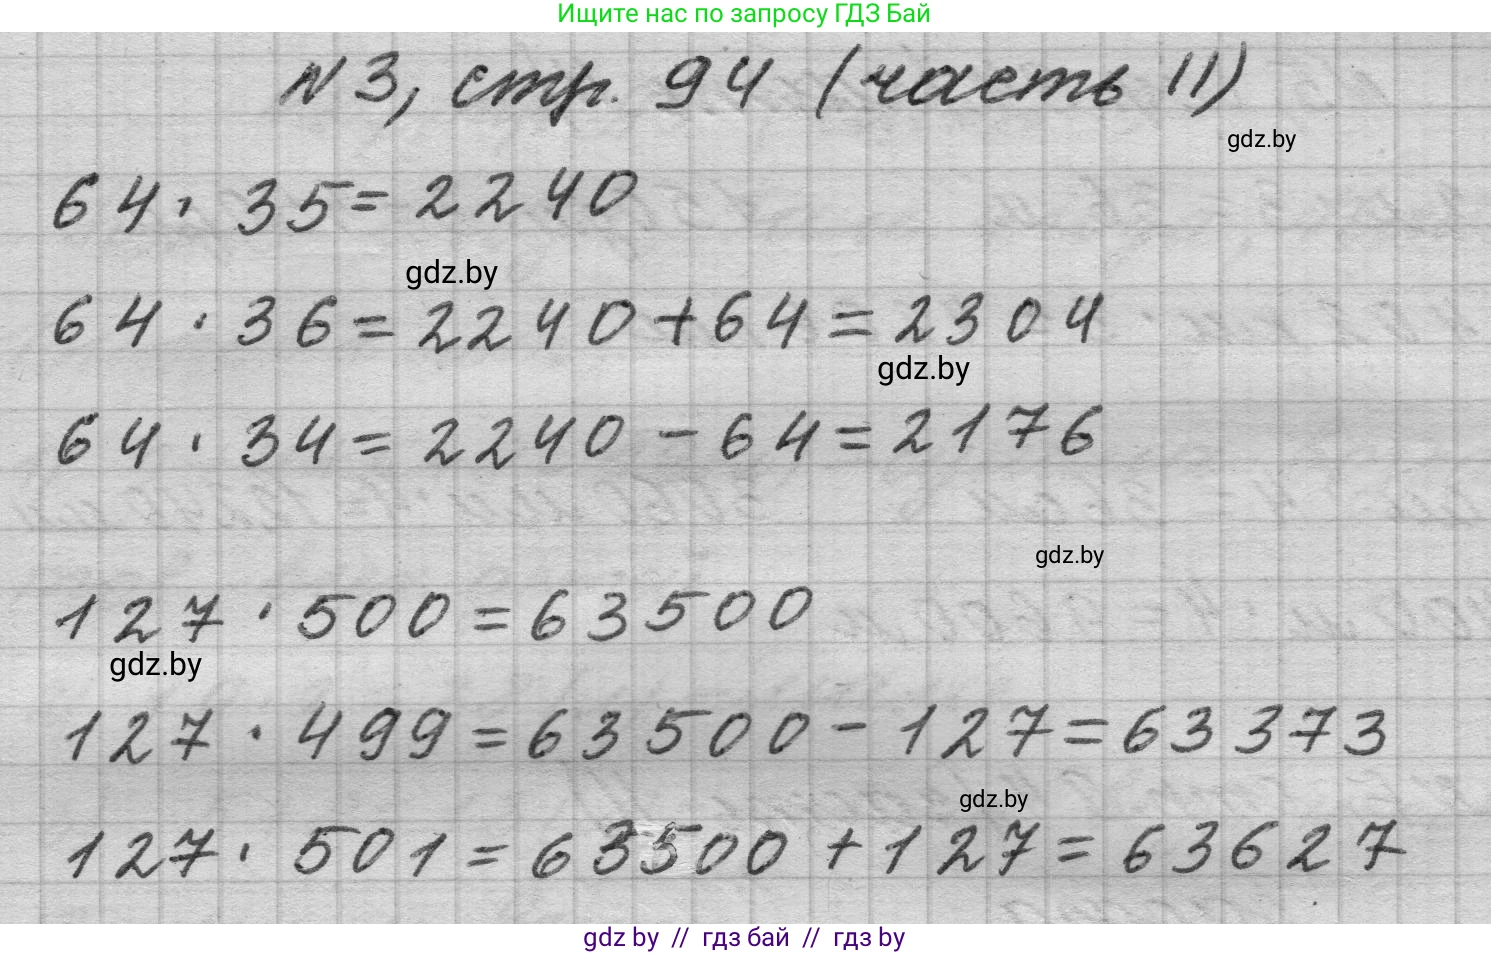 Ищите нас по запросу ГДЗ Бай
№3, стр. 94 (часть II)
gdz.by
64 · 35 = 2240
gdz.by
64 · 36 = 2240 + 64 = 2304
gdz.by
64 · 34 = 2240 - 64 = 2176
gdz.by
127 · 500 = 63500
gdz.by
127 · 499 = 63500 - 127 = 63373
gdz.by
127 · 501 = 63500 + 127 = 63627
gdz by // гдз бай // гдз by